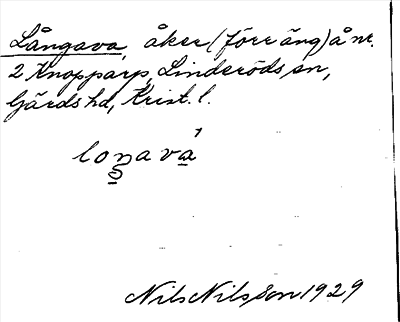 Långava, åker (förr äng) å nr.
2 Knopparp, Linderöds sn,
Gärds hd, Krist. l.
loŋava
Nils Nilsson 1929